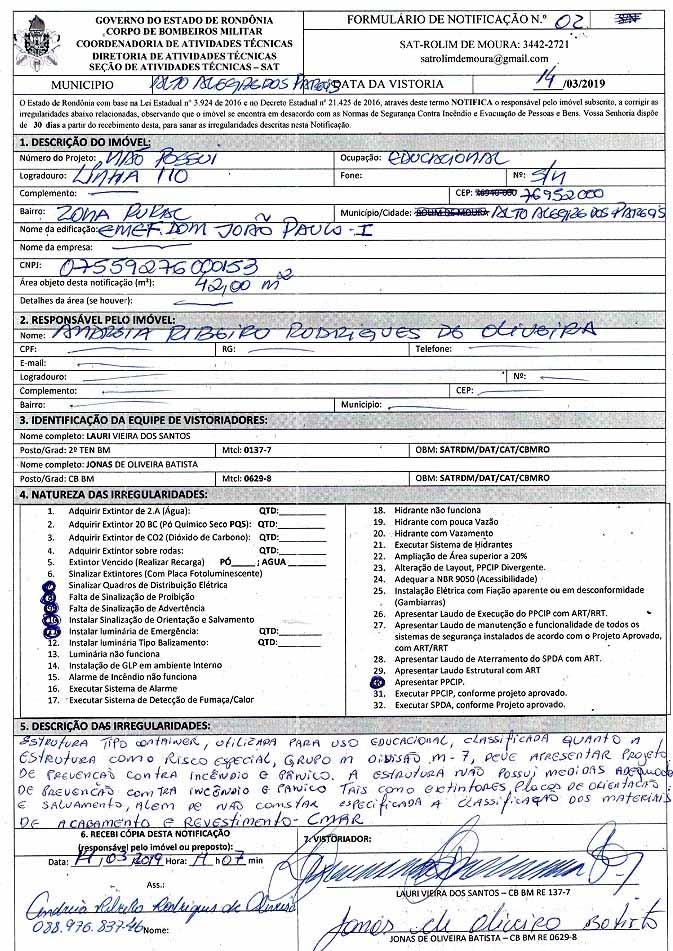 GOVERNO DO ESTADO DE RONDÔNIA
CORPO DE BOMBEIROS MILITAR
COORDENADORIA DE ATIVIDADES TÉCNICAS
DIRETORIA DE ATIVIDADES TÉCNICAS
SEÇÃO DE ATIVIDADES TÉCNICAS – SAT
FORMULÁRIO DE NOTIFICAÇÃO N.º 02
SAT-ROLIM DE MOURA: 3442-2721
satrolimdemoura@gmail.com
MUNICIPIO ALTO ALEGRE DOS PARECIS DATA DA VISTORIA 14 /03/2019
O Estado de Rondônia com base na Lei Estadual nº 3.924 de 2016 e no Decreto Estadual nº 21.425 de 2016, através deste termo NOTIFICA o responsável pelo imóvel subscrito, a corrigir as
irregularidades abaixo relacionadas, observando que o imóvel se encontra em desacordo com as Normas de Segurança Contra Incêndio e Evacuação de Pessoas e Bens. Vossa Senhoria dispõe
de 30 dias a partir do recebimento desta, para sanar as irregularidades descritas nesta Notificação.
1. DESCRIÇÃO DO IMÓVEL:
Número do Projeto: NÃO POSSUI Ocupação: EDUCACIONAL
Logradouro: LINHA 110 Fone: Nº: S/N
Complemento: CEP: 76940-000 76952000
Bairro: ZONA RURAL Município/Cidade: ROLIM DE MOURA ALTO ALEGRE DOS PARECIS
Nome da edificação: EMEF. DOM JOÃO PAULO-I
Nome da empresa:
CNPJ: 07559276000153
Área objeto desta notificação (m²): 42,00 m²
Detalhes da área (se houver):
2. RESPONSÁVEL PELO IMÓVEL:
Nome: ANDREIA RIBEIRO RODRIGUES DE OLIVEIRA
CPF: RG: Telefone:
E-mail:
Logradouro: Nº:
Complemento: CEP:
Bairro: Municipio:
3. IDENTIFICAÇÃO DA EQUIPE DE VISTORIADORES:
Nome completo: LAURI VIEIRA DOS SANTOS
Posto/Grad: 2º TEN BM Mtcl: 0137-7 OBM: SATRDM/DAT/CAT/CBMRO
Nome completo: JONAS DE OLIVEIRA BATISTA
Posto/Grad: CB BM Mtcl: 0629-8 OBM: SATRDM/DAT/CAT/CBMRO
4. NATUREZA DAS IRREGULARIDADES:
1. Adquirir Extintor de 2.A (Água): QTD:
2. Adquirir Extintor 20 BC (Pó Químico Seco PQS): QTD:
3. Adquirir Extintor de CO2 (Dióxido de Carbono): QTD:
4. Adquirir Extintor sobre rodas: QTD:
5. Extintor Vencido (Realizar Recarga) PÓ____; AGUA
6. Sinalizar Extintores (Com Placa Fotoluminescente)
7. Sinalizar Quadros de Distribuição Elétrica
8. Falta de Sinalização de Proibição
9. Falta de Sinalização de Advertência
10. Instalar Sinalização de Orientação e Salvamento
11. Instalar luminária de Emergência: QTD:
12. Instalar luminária Tipo Balizamento: QTD:
13. Luminária não funciona
14. Instalação de GLP em ambiente Interno
15. Alarme de Incêndio não funciona
16. Executar Sistema de Alarme
17. Executar Sistema de Detecção de Fumaça/Calor
18. Hidrante não funciona
19. Hidrante com pouca Vazão
20. Hidrante com Vazamento
21. Executar Sistema de Hidrantes
22. Ampliação de Área superior a 20%
23. Alteração de Layout, PPCIP Divergente.
24. Adequar a NBR 9050 (Acessibilidade)
25. Instalação Elétrica com Fiação aparente ou em desconformidade
(Gambiarras)
26. Apresentar Laudo de Execução do PPCIP com ART/RRT.
27. Apresentar Laudo de manutenção e funcionalidade de todos os
sistemas de segurança instalados de acordo com o Projeto Aprovado,
com ART/RRT
28. Apresentar Laudo de Aterramento do SPDA com ART.
29. Apresentar Laudo Estrutural com ART
30. Apresentar PPCIP.
31. Executar PPCIP, conforme projeto aprovado.
32. Executar SPDA, conforme projeto aprovado.
5. DESCRIÇÃO DAS IRREGULARIDADES:
ESTRUTURA TIPO CONTAINER, UTILIZADA PARA USO EDUCACIONAL, CLASSIFICADA QUANTO A
ESTRUTURA COMO RISCO ESPECIAL, GRUPO M DIVISÃO M-7, DEVE APRESENTAR PROJETO
DE PREVENCÃO CONTRA INCÊNDIO E PÂNICO. A ESTRUTURA NÃO POSSUI MEDIDAS ADEQUADAS
DE PREVENCÃO CONTRA INCÊNDIO E PÂNICO TAIS COMO EXTINTORES, PLACAS DE ORIENTAÇÃO
E SALVAMENTO, ALÉM DE NÃO CONSTAR ESPECIFICADA A CLASSIFICAÇÃO DOS MATERIAIS
DE ACABAMENTO E REVESTIMENTO - CMAR
6. RECEBI CÓPIA DESTA NOTIFICAÇÃO
(responsável pelo imóvel ou preposto):
Data: 14 / 03 / 2019 Hora: 11 h 07 min
Ass.:
Andreia Ribeiro Rodrigues de Oliveira
Nome:
7. VISTORIADOR:
LAURI VIEIRA DOS SANTOS – CB BM RE 137-7
Jonas de Oliveira Batista
JONAS DE OLIVEIRA BATISTA – CB BM RE 0629-8